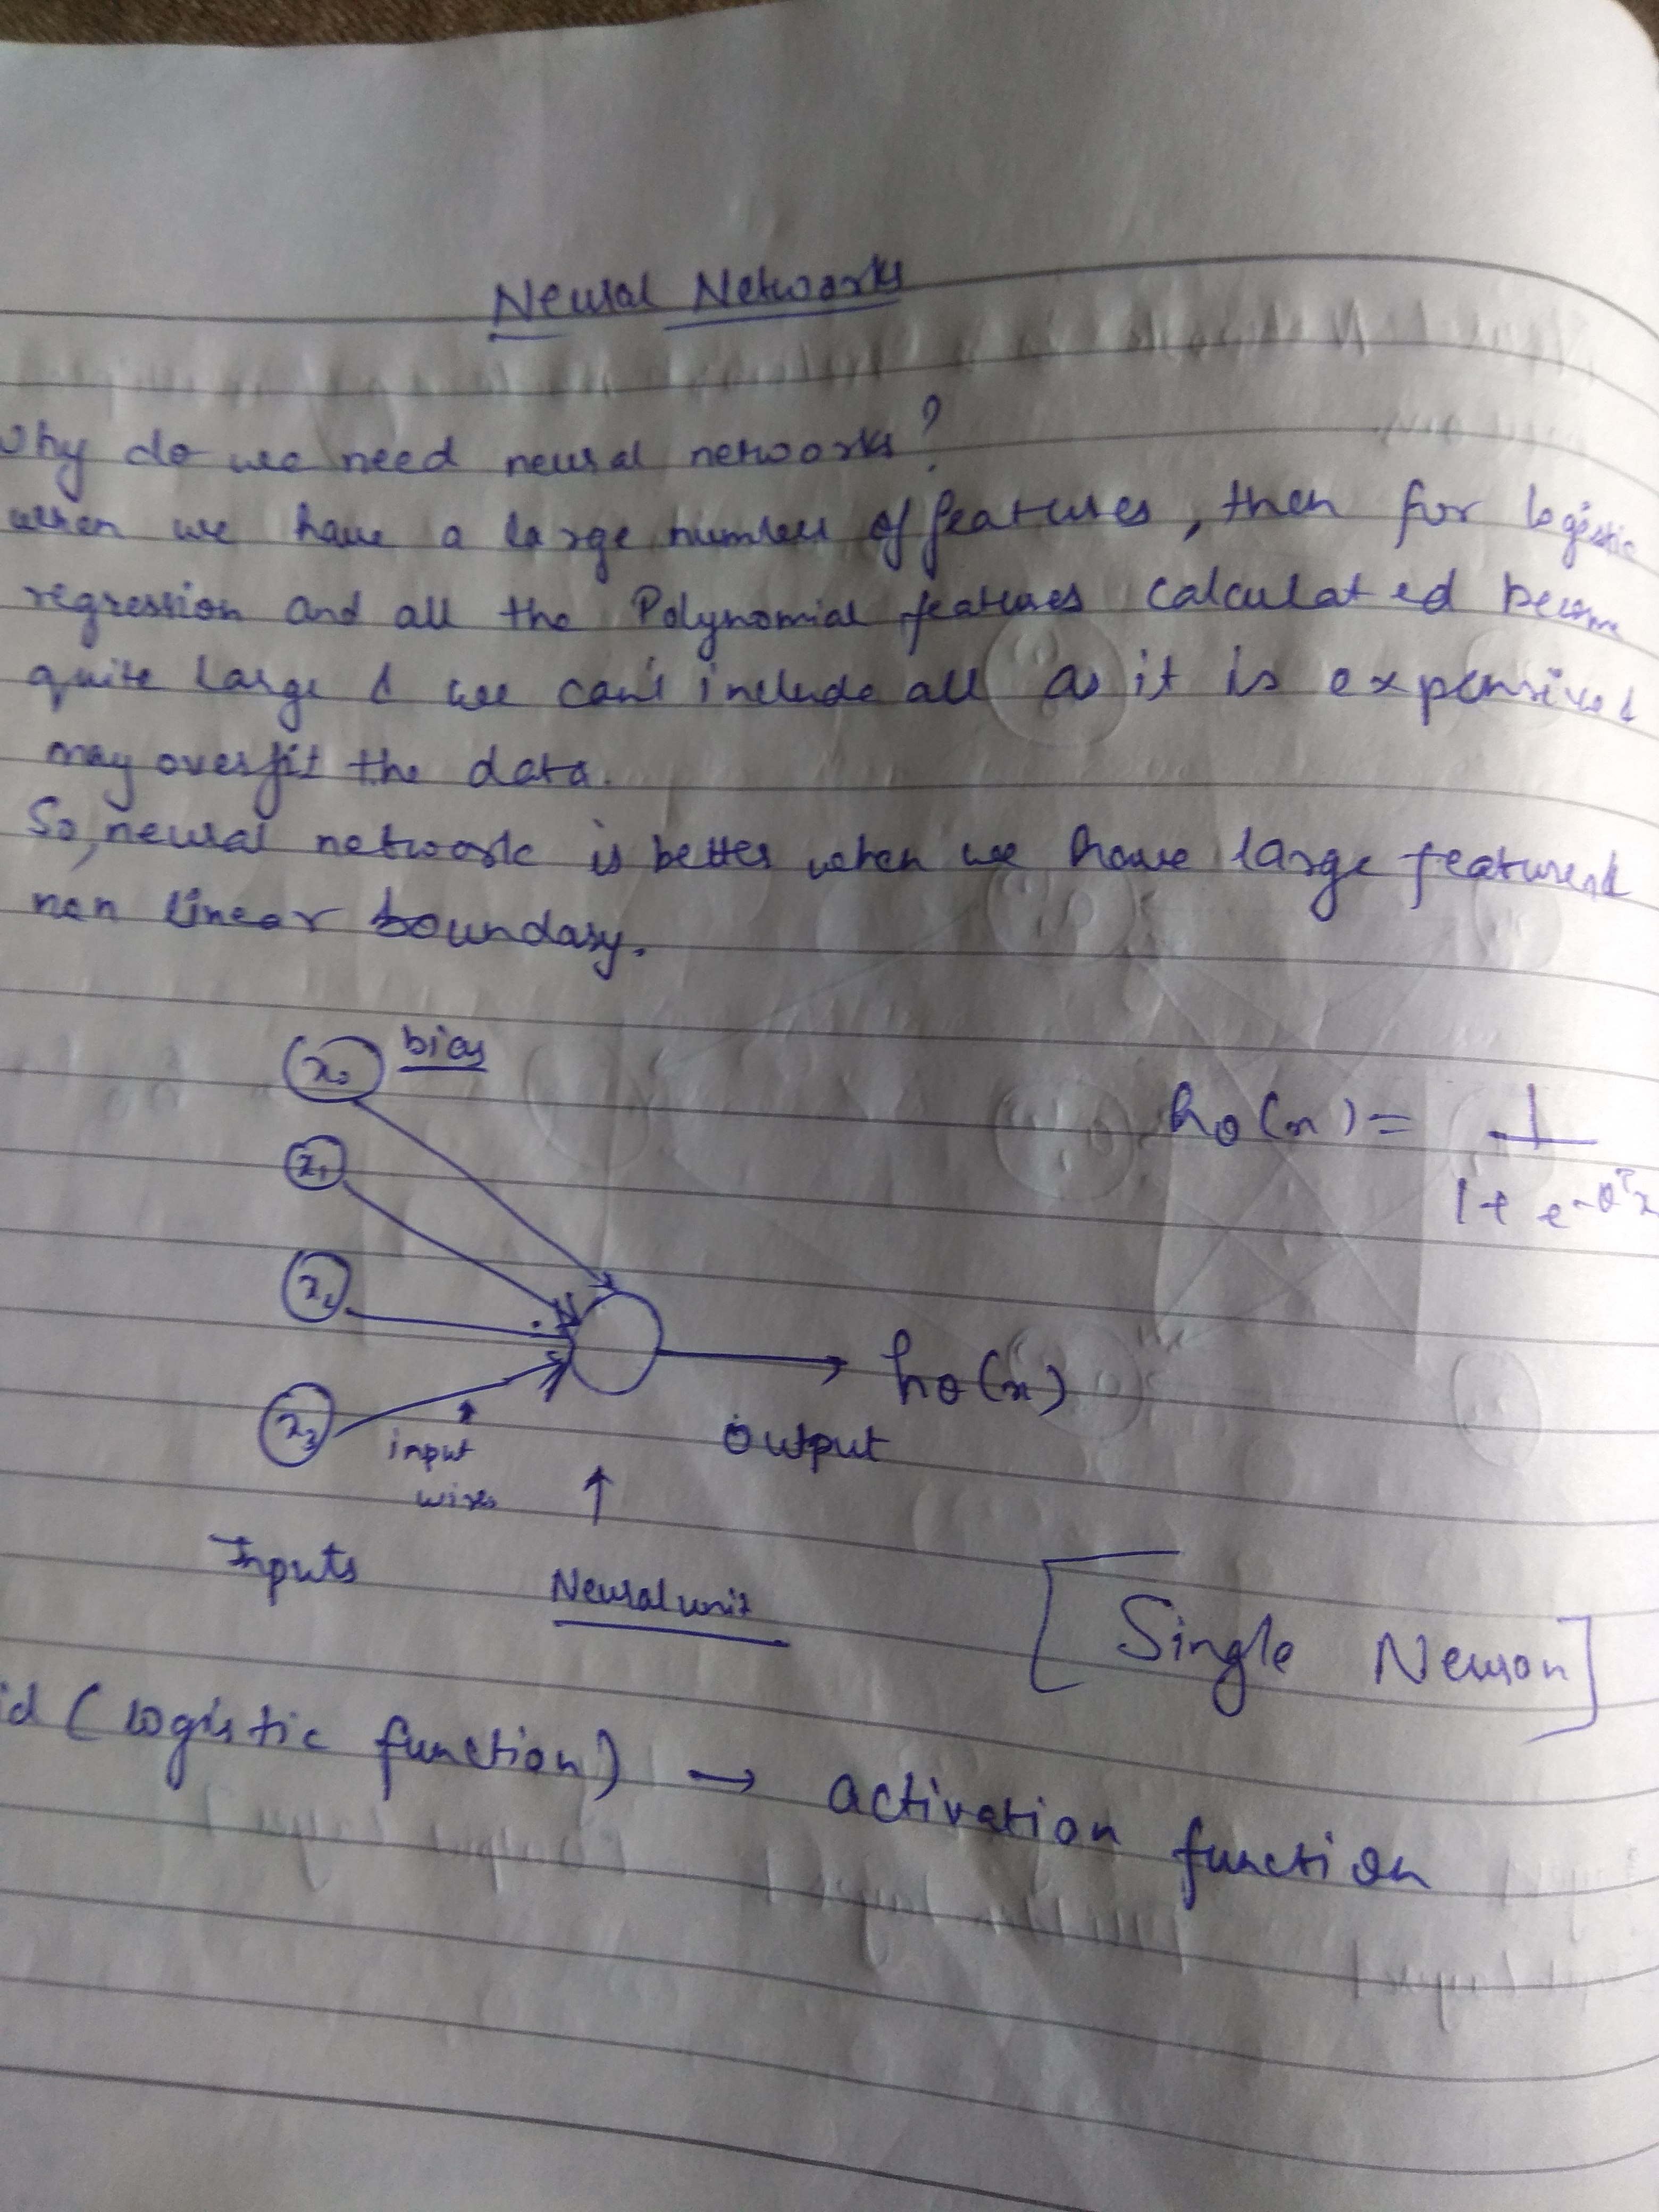 Neural Networks
Why do we need neural networks?
when we have a large number of features, then for logistic
regression and all the Polynomial features calculated become
quite large & we can't include all as it is expensive &
may overfit the data.
So, neural network is better when we have large features &
non linear boundary.
x₀ bias
x₁
x₂
x₃
hθ(x) = 1 / 1 + e^-θᵀx
hθ(x)
output
input
wires
Inputs
Neural unit
[Single Neuron]
id (logistic function) → activation function